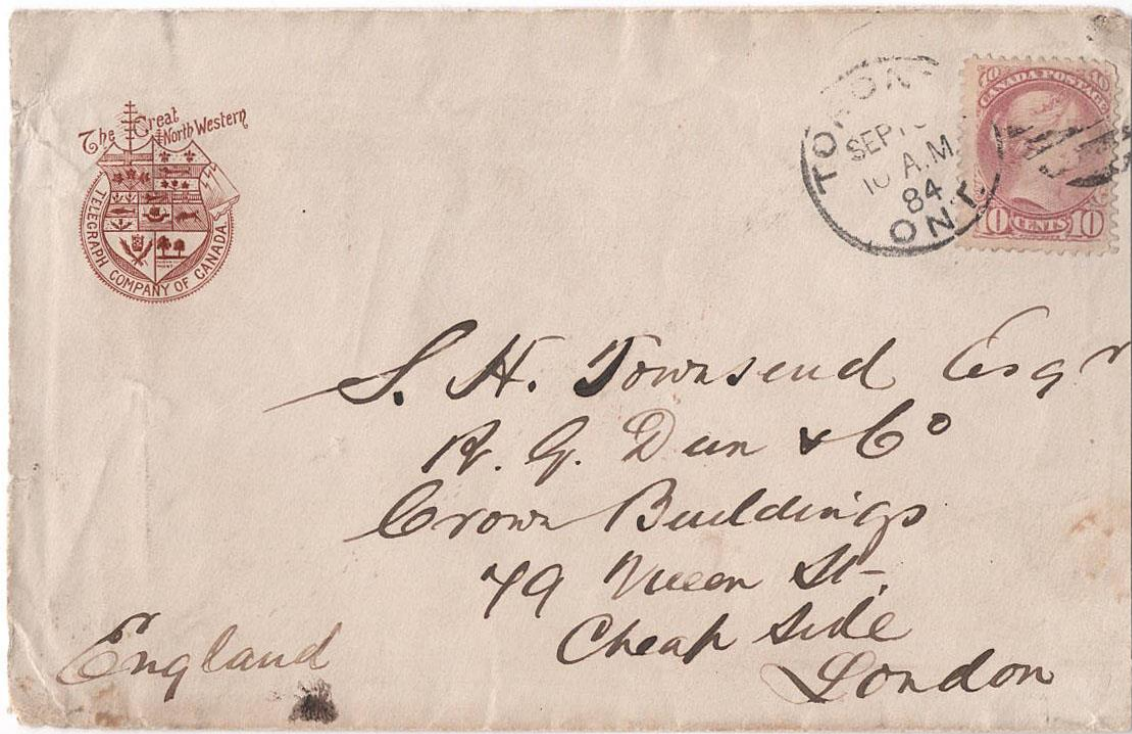 The Great
North Western
TELEGRAPH COMPANY OF CANADA
TORO
SEP
10 A.M.
84
ONT.
10 10
CANADA POSTAGE
10 CENTS 10
S. H. Townsend Esqr
R. G. Dun & Co
Crown Buildings
79 Queen St.
Cheap Side
London
England